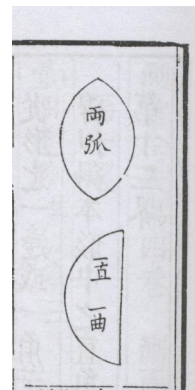 両弧
一直一曲